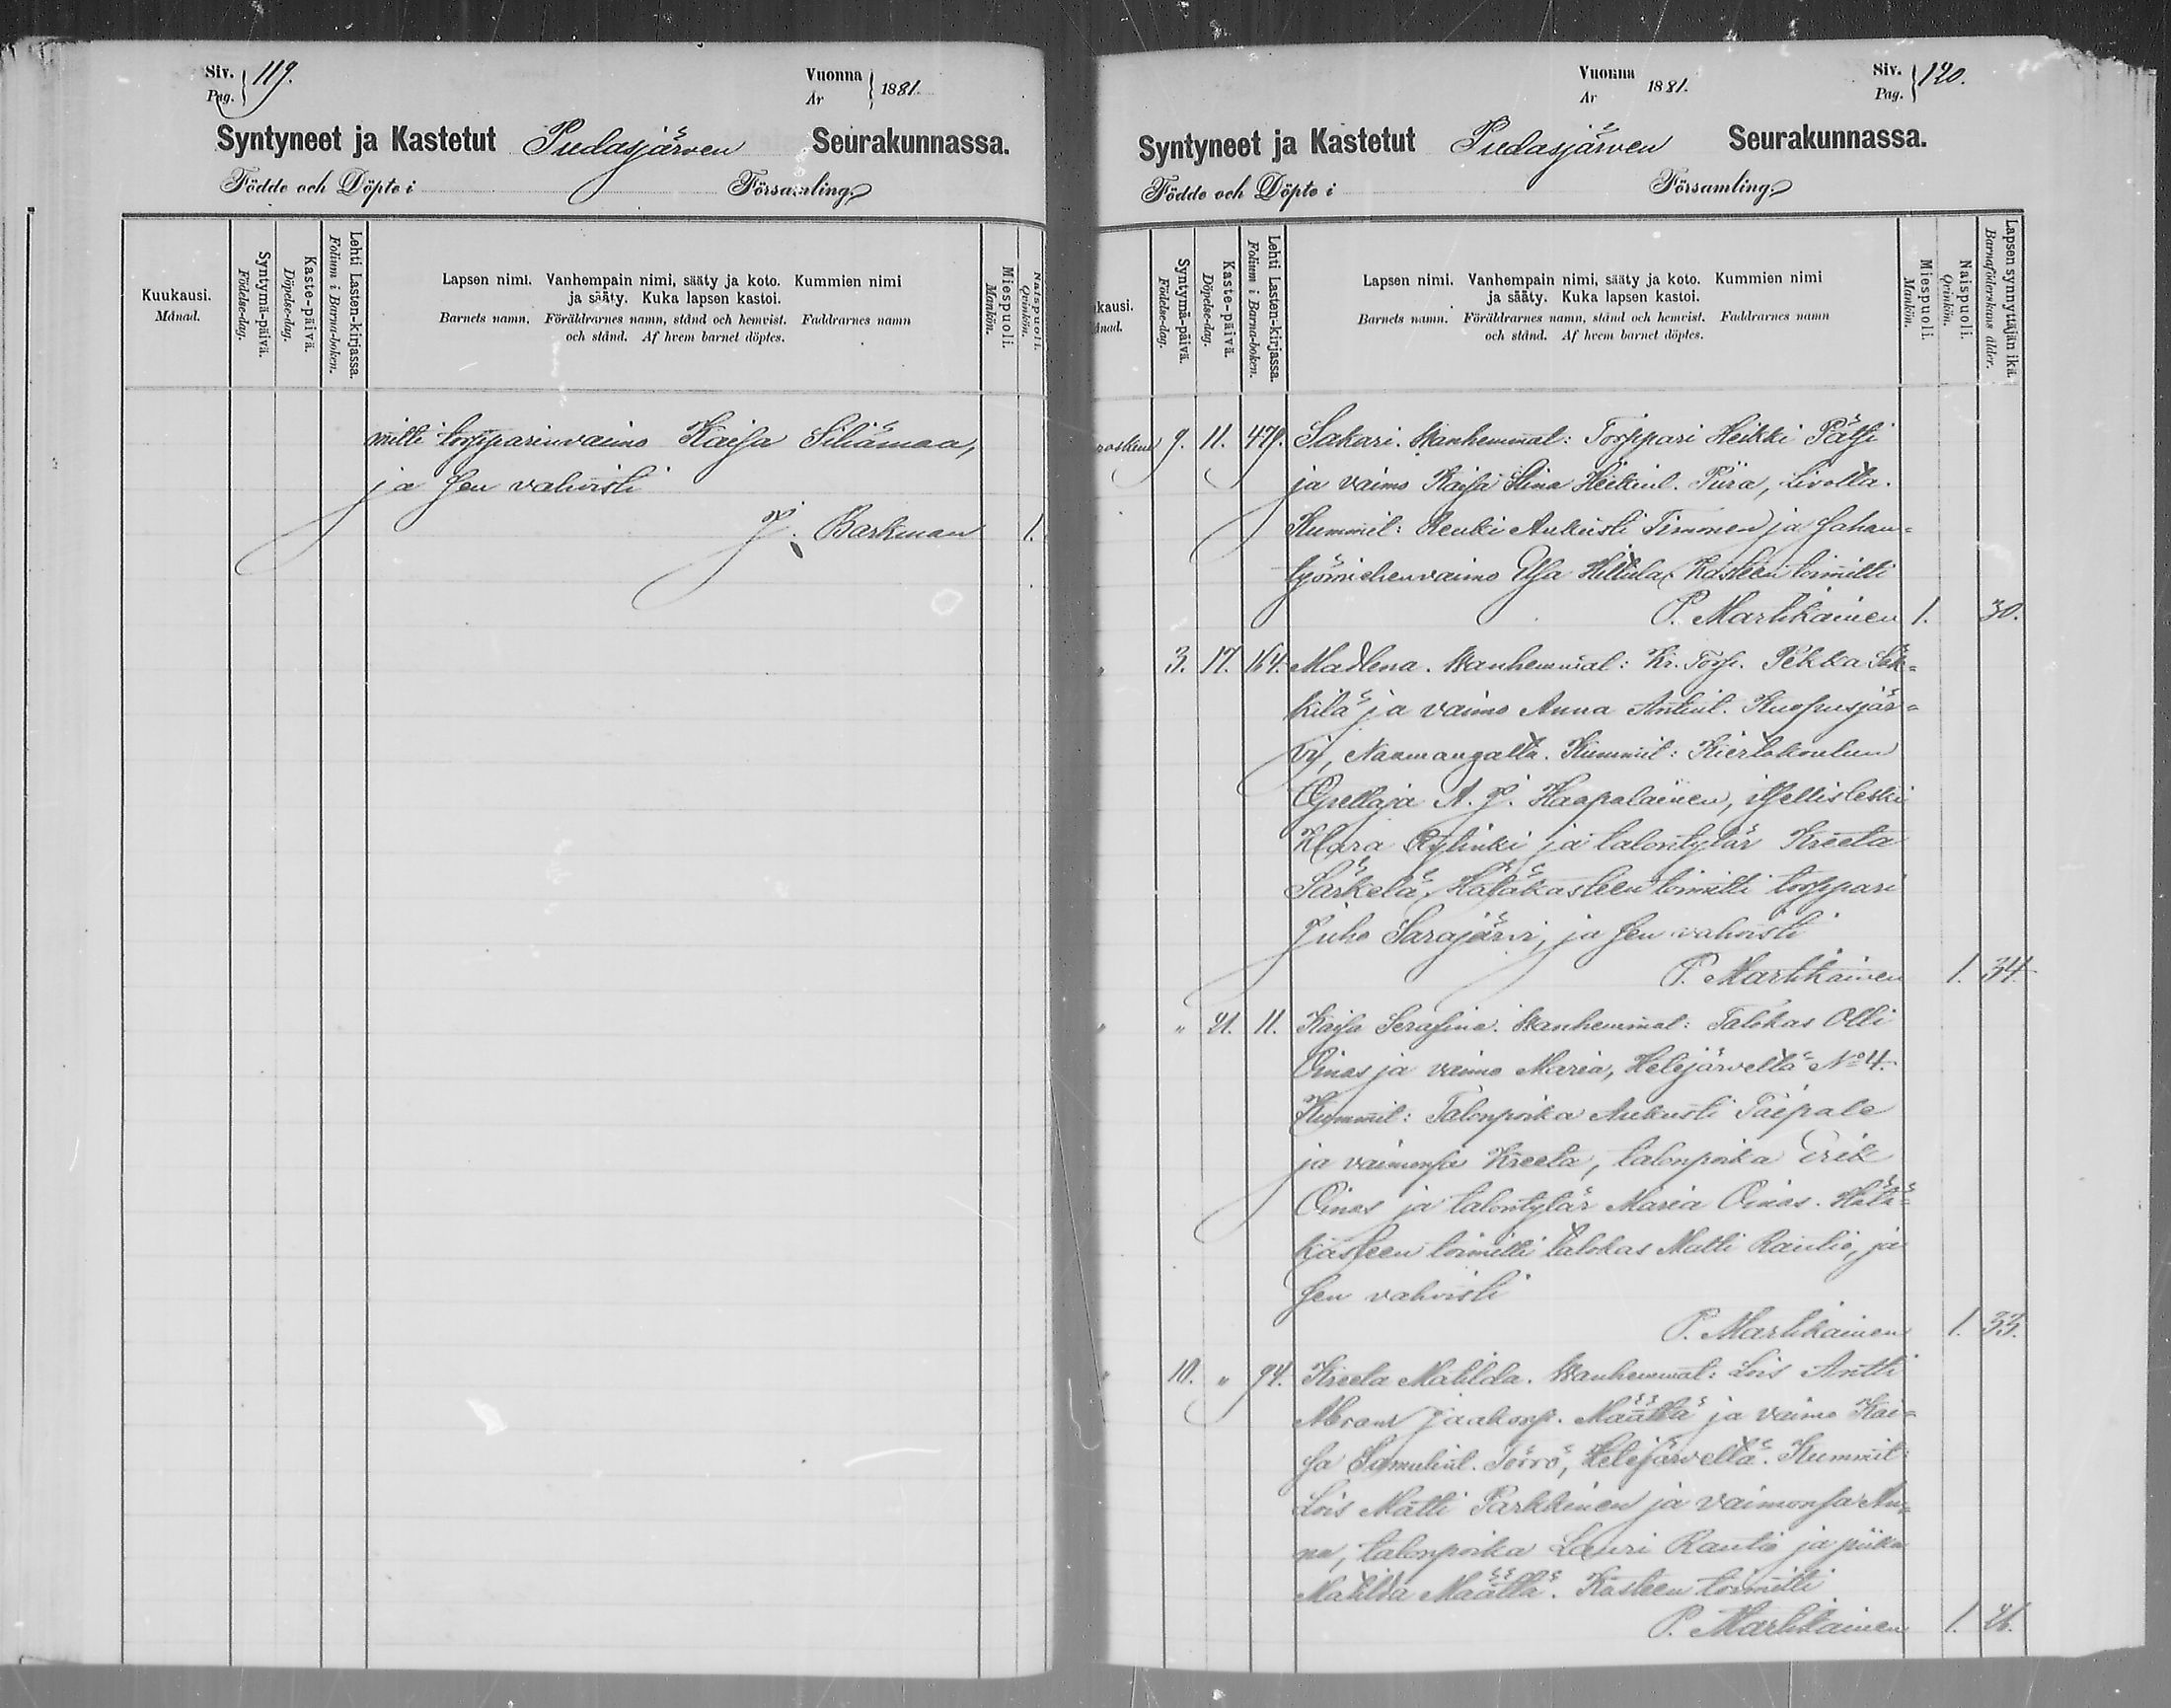 Siv. Pag. } 119.
Vuonna Ar } 1881.
Syntyneet ja Kastetut Pudasjärven Seurakunnassa.
Födde och Döpte i Församling.
Kuukausi. Månad.
Syntymä-päivä. Födelse-dag.
Kaste-päivä. Döpelse-dag.
Lehti Lasten-kirjassa. Folium i Barna-boken.
Lapsen nimi. Vanhempain nimi, sääty ja koto. Kummien nimi
ja sääty. Kuka lapsen kastoi.
Barnets namn. Föräldrarnes namn, stånd och hemvist. Faddrarnes namn
och stånd. Af hvem barnet döptes.
Miespuoli. Mankön.
Naispuoli. Qvinkön.
mitti torpparinvaimo Kaisa Siliämaa,
ja sen vahvisti
J. Barkman 1.
Vuonna Ar 1881.
Siv. Pag. } 120.
Syntyneet ja Kastetut Pudasjärven Seurakunnassa.
Födde och Döpte i Församling.
kausi. ånad.
Syntymä-päivä. Födelse-dag.
Kaste-päivä. Döpelse-dag.
Lehti Lasten-kirjassa. Folium i Barna-boken.
Lapsen nimi. Vanhempain nimi, sääty ja koto. Kummien nimi
ja sääty. Kuka lapsen kastoi.
Barnets namn. Föräldrarnes namn, stånd och hemvist. Faddrarnes namn
och stånd. Af hvem barnet döptes.
Miespuoli. Mankön.
Naispuoli. Qvinkön.
Lapsen synnyttäjän ikä. Barnaföderskans ålder.
9. 11. 479. Sakari. Wanhemmat: Torppari Heikki Pätsi
ja vaimo Kaisa Stina Heikint. Piira, Livolta.
Kummit: Renki Aukusti Timonen ja sahan-
työmiehenvaimo Elsa Hiltula. Kasteen toimitti
P. Martikainen 1. 30.
" 3. 17. 164. Madlena. Wanhemmat: Kr. Torp. Pekka Säk-
kilä ja vaimo Anna Antint. Kuopusjär-
vi, Naamangalta. Kummit: Kiertokoulun
Opettaja A. J. Haapalainen, itsellisleski
Klara Rytinki ja talontytär Kreeta
Särkelä. Hätäkasteen toimitti torppari
Juho Sarajärvi, ja sen vahvisti
P. Martikainen 1. 34.
" " 21. 11. Kaisa Serafina. Wanhemmat: Talokas Olli
Oinas ja vaimo Maria, Hetejärveltä No 4.
Kummit: Talonpoika Aukusti Taipale
ja vaimonsa Kreeta, talonpoika Erik
Oinas ja talontytär Maria Oinas. Hätä-
kasteen toimitti talokas Matti Rautio, ja
sen vahvisti
P. Martikainen 1. 33.
" 10. " 94. Kreeta Matilda. Wanhemmat: Lois Antti
Abram Jaakonp. Määttä ja vaimo Kai-
sa Samulint. Törrö, Hetejärveltä. Kummit:
Lois Matti Parkkinen ja vaimonsa An-
na, talonpoika Lauri Rautio ja piika
Matilda Määttä. Kasteen toimitti
P. Martikainen 1. 26.